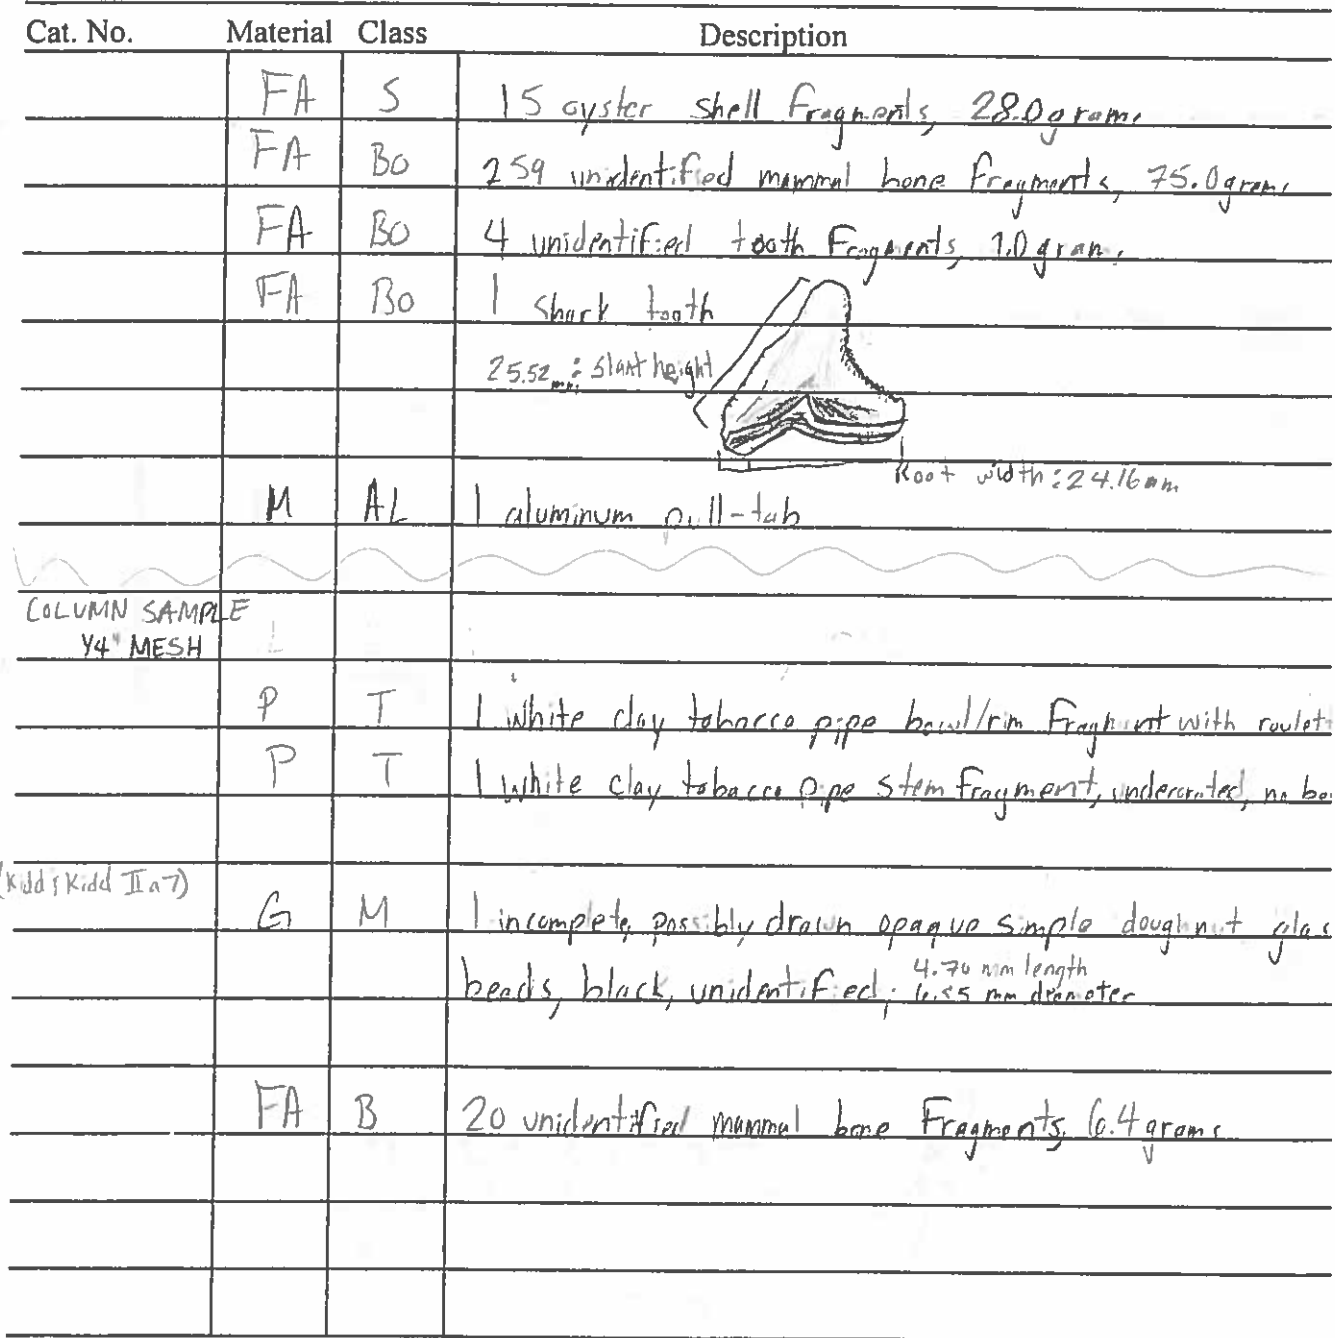 Cat. No. Material Class Description
FA S 15 oyster shell fragments, 28.0 grams
FA Bo 259 unidentified mammal bone fragments, 75.0 grams
FA Bo 4 unidentified tooth fragments, 1.0 grams
FA Bo 1 shark tooth
25.52 mm: slant height
Root width: 24.16 mm
M AL 1 aluminum pull-tab
COLUMN SAMPLE
1/4" MESH
P T 1 white clay tobacco pipe bowl/rim fragment with roulet
P T 1 white clay tobacco pipe stem fragment, undecorated, no bo
(Kidd & Kidd IIa7)
G M 1 incomplete, possibly drawn opaque simple doughnut glas
beads, black, unidentified; 4.70 mm length
mm diameter
FA B 20 unidentified mammal bone fragments, 6.4 grams